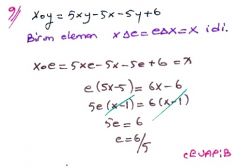 9) x∘y = 5xy-5x-5y+6
Birim eleman x∆e = e∆x = x idi.
x∘e = 5xe-5x-5e+6 = x
e(5x-5) = 6x-6
5e(x-1) = 6(x-1)
5e = 6
e = 6/5
CEVAP: B